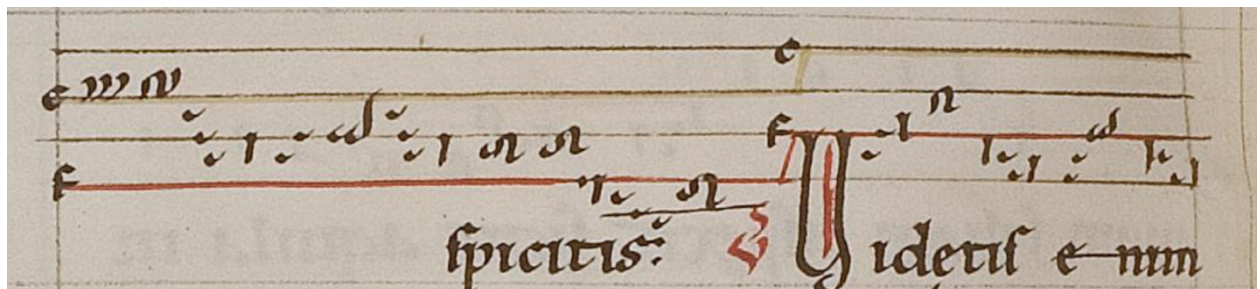 spicitis: V Videtis enim